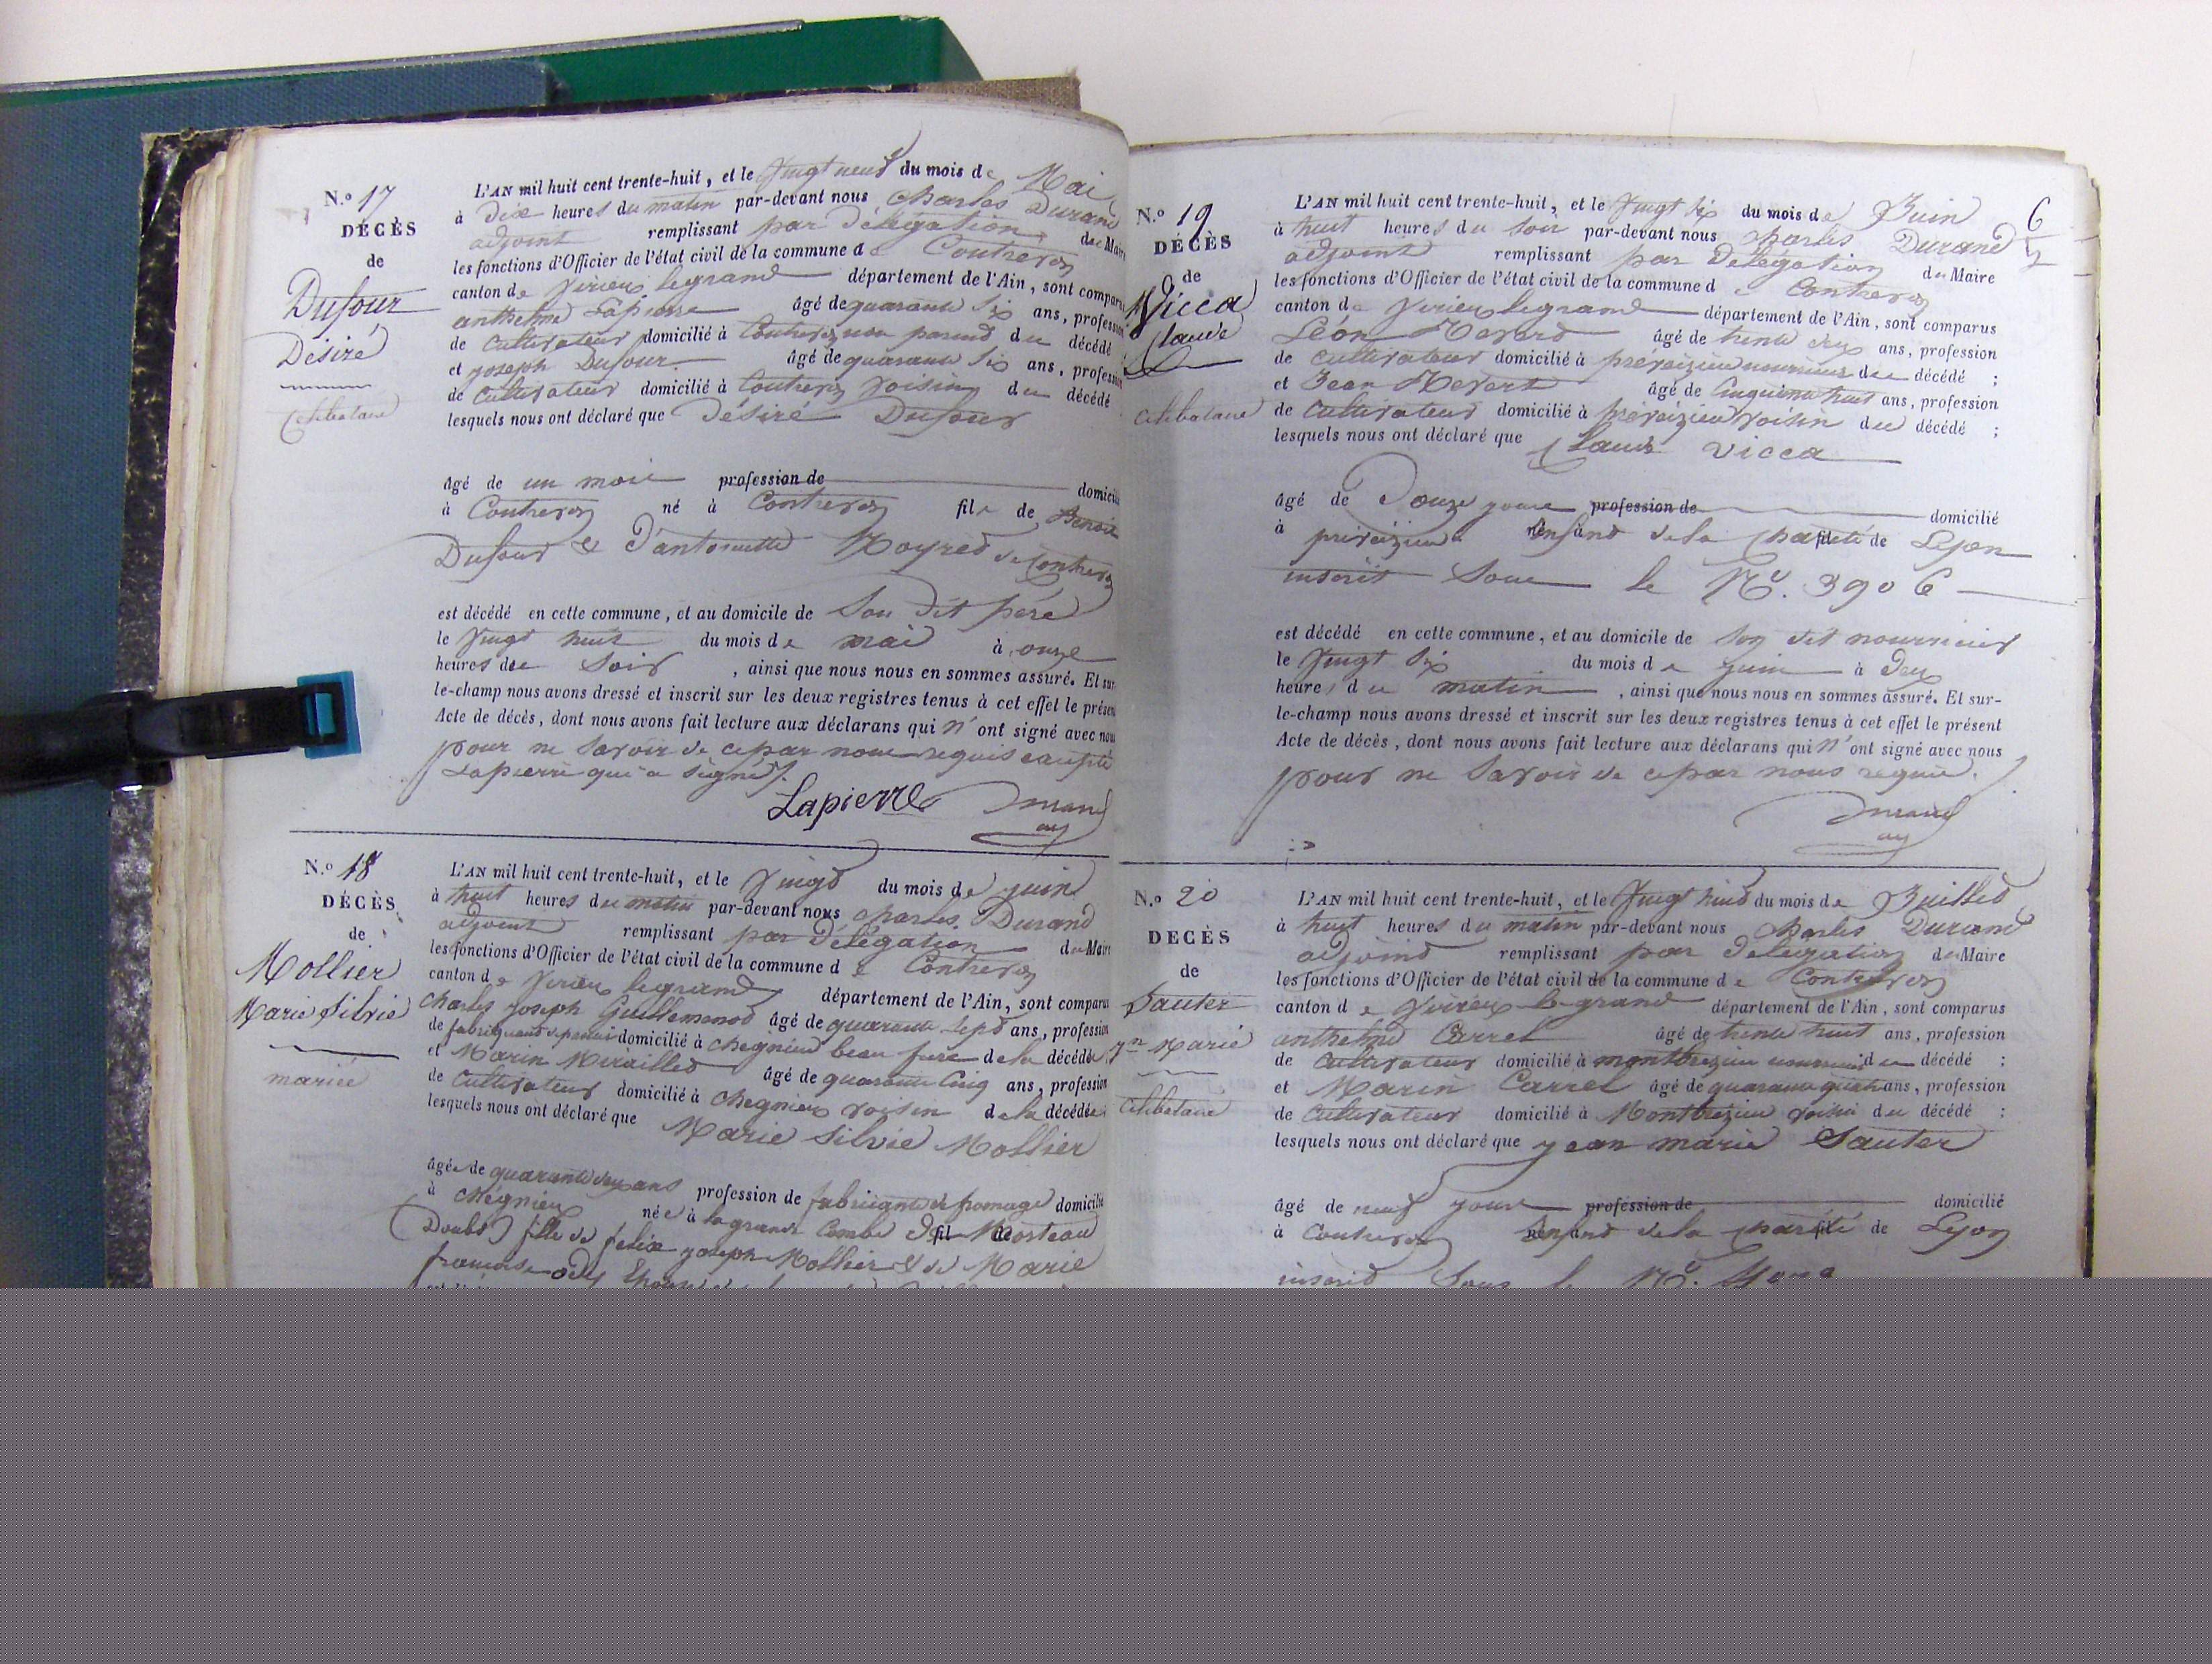 N.o 17
DÉCÈS
de
Dufour
Désiré
Célibataire
L'AN mil huit cent trente-huit, et le Vingt neuf du mois de Mai
à Dix heures du matin par-devant nous Charles Durand
adjoint remplissant par Délégation du Maire
les fonctions d'Officier de l'état civil de la commune de Contrevoz
canton de Virieu legrand département de l'Ain, sont comparus
anthelme Lapierre âgé de quarante six ans, profession
de Cultivateur domicilié à Contrevoz non parend du décédé
et joseph Dufour âgé de quarante six ans, profession
de Cultivateur domicilié à Contrevoz voising du décédé
lesquels nous ont déclaré que Désiré Dufour
âgé de un mois profession de domicilié
à Contrevoz né à Contrevoz fils de Benoit
Dufour & D'antoinette Moyred de Contrevoz
est décédé en cette commune, et au domicile de Son dit père
le Vingt huit du mois de mai à onze
heures du Soir, ainsi que nous nous en sommes assuré. Et sur-
le-champ nous avons dressé et inscrit sur les deux registres tenus à cet effet le présent
Acte de décès, dont nous avons fait lecture aux déclarans qui n'ont signé avec nous
pour ne Savoir de ce par nous requis excepté
Lapierre qui a signé
Lapierre Durand
adj
N.o 18
DÉCÈS
de
Mollier
Marie Silvie
mariée
L'AN mil huit cent trente-huit, et le Vingt du mois de juin
à huit heures du matin par-devant nous Charles Durand
adjoint remplissant par Délégation du Maire
les fonctions d'Officier de l'état civil de la commune de Contrevoz
canton de Virieu legrand département de l'Ain, sont comparus
Charles joseph Guillemenod âgé de quarante Sept ans, profession
de domicilié à Chegnieu beau frere de la décédée
et Marin Miraillet âgé de quarante Cinq ans, profession
de Cultivateur domicilié à Chegnieu voisin de la décédée
lesquels nous ont déclaré que Marie Silvie Mollier
âgée de quarante deux ans profession de fabriquante de fromage domicilié
à Chégnieu née à la grande Combe de Morteau
(Doubs) fille de félix joseph Mollier & de Marie
N.o 19
DÉCÈS
de
Vicca
Claude
Célibataire
6
L'AN mil huit cent trente-huit, et le Vingt six du mois de Juin
à huit heures du Soir par-devant nous Charles Durand
adjoint remplissant par Délégation du Maire
les fonctions d'Officier de l'état civil de la commune de Contrevoz
canton de Virieu legrand département de l'Ain, sont comparus
Léon Mevert âgé de trente deux ans, profession
de Cultivateur domicilié à preveizieu nourricier du décédé ;
et Jean Mevert âgé de Cinquante huit ans, profession
de Cultivateur domicilié à preveizieu voisin du décédé ;
lesquels nous ont déclaré que Claude Vicca
âgé de Douze jours profession de domicilié
à preveizieu Enfand de la Charité de Lyon
inscrit Sous le No. 3906
est décédé en cette commune, et au domicile de Son dit nourricier
le Vingt six du mois de juin à Deux
heures du matin, ainsi que nous nous en sommes assuré. Et sur-
le-champ nous avons dressé et inscrit sur les deux registres tenus à cet effet le présent
Acte de décès, dont nous avons fait lecture aux déclarans qui n'ont signé avec nous
pour ne Savoir de ce par nous requis.
Durand
adj
N.o 20
DÉCÈS
de
Sauter
Jn Marie
Célibataire
L'AN mil huit cent trente-huit, et le Vingt huit du mois de Juillet
à huit heures du matin par-devant nous Charles Durand
adjoint remplissant par Délégation du Maire
les fonctions d'Officier de l'état civil de la commune de Contrevoz
canton de Virieu le grand département de l'Ain, sont comparus
anthelme Carrel âgé de trente huit ans, profession
de Cultivateur domicilié à montbreizieu nourricier du décédé :
et Marin Carrel âgé de quarante quatre ans, profession
de Cultivateur domicilié à Montbreizieu voisin du décédé :
lesquels nous ont déclaré que jean marie Sauter
âgé de neuf jours profession de domicilié
à Contrevoz Enfand de la Charité de Lyon
inscrit Sous le No.